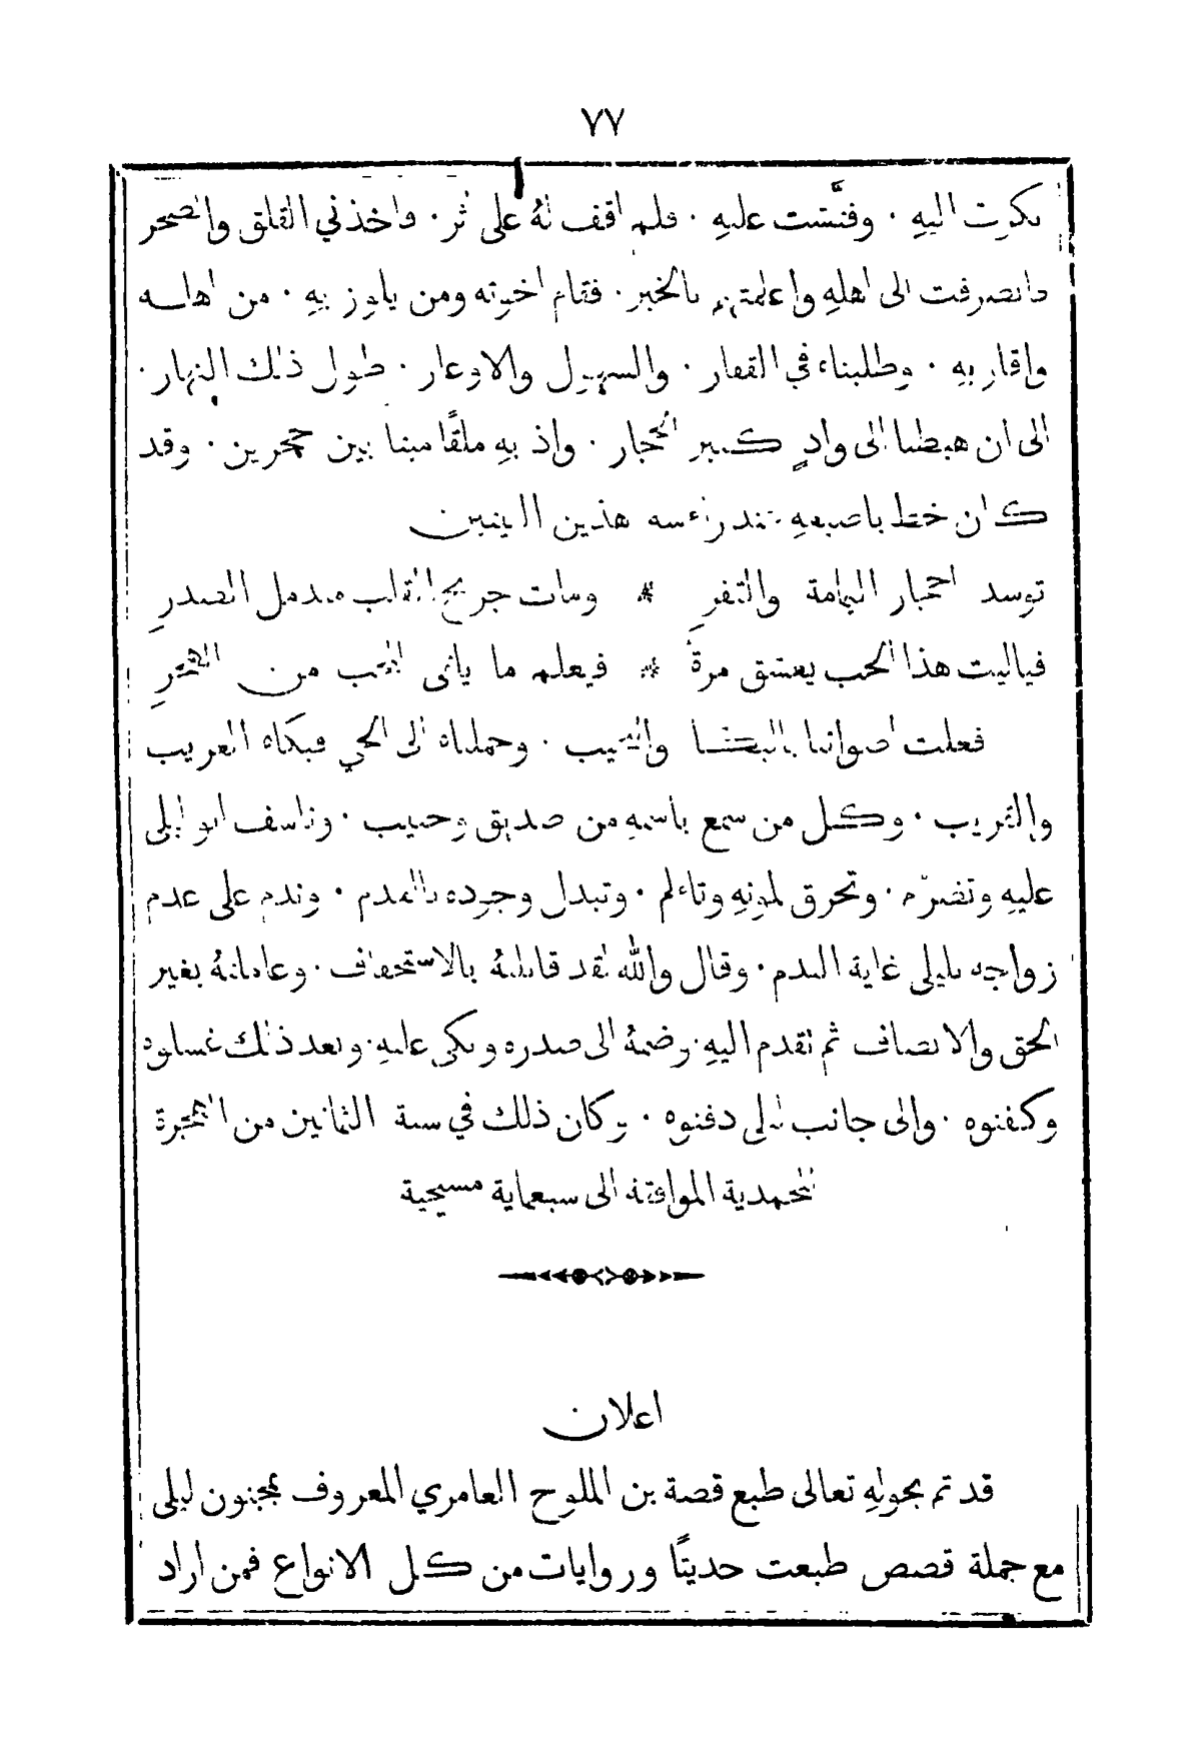 ٧٧
بكرت اليهِ ٠ وفتَّشت عليهِ ٠ فلم اقف لهُ على اثر ٠ فاخذني القلق والضجر
فانصرفت الى اهلهِ واعلمتهم بالخبر ٠ فقام اخوته ومن يلوز بهِ ٠ من اهله
واقاربهِ ٠ وطلبناه في القفار ٠ والسهول والاوعار ٠ طول ذلك النهار ٠
الى ان هبطنا الى وادٍ كبير الحجار ٠ واذ بهِ ملقًا ميتا بين حجرين ٠ وقد
كان خط باصبعهِ عند راءسه هذين البيتين
توسد احجار اليمامة والقفرِ * ومات جريح القلب مندمل الصدرِ
فياليت هذا الحب يعشق مرةً * فيعلم ما يلقى المحب من الهجرِ
فعلت اصواتنا بالبكاء والنحيب ٠ وحملناه الى الحي فبكاه الغريب
والقريب ٠ وكل من سمع باسمهِ من صديق وحبيب ٠ وتاسف ابو ليلى
عليهِ وتضرّم ٠ وتحرق لموتهِ وتاءلم ٠ وتبدل وجوده بالعدم ٠ وندم على عدم
زواجه بليلى غاية الندم ٠ وقال والله لقد قابلتهُ بالاستخفاف ٠ وعاملتهُ بغير
الحق والانصاف ثم تقدم اليهِ ٠ وضمهُ الى صدره وبكى عليهِ ٠ وبعد ذلك غسلوه
وكفنوه ٠ والى جانب ليلى دفنوه ٠ وكان ذلك في سنة الثمانين من الهجرة
المحمدية الموافقة الى سبعماية مسيحية
اعلان
قد تم بحولهِ تعالى طبع قصة بن الملوح العامري المعروف بمجنون ليلى
مع جملة قصص طبعت حديثًا وروايات من كل الانواع فمن اراد